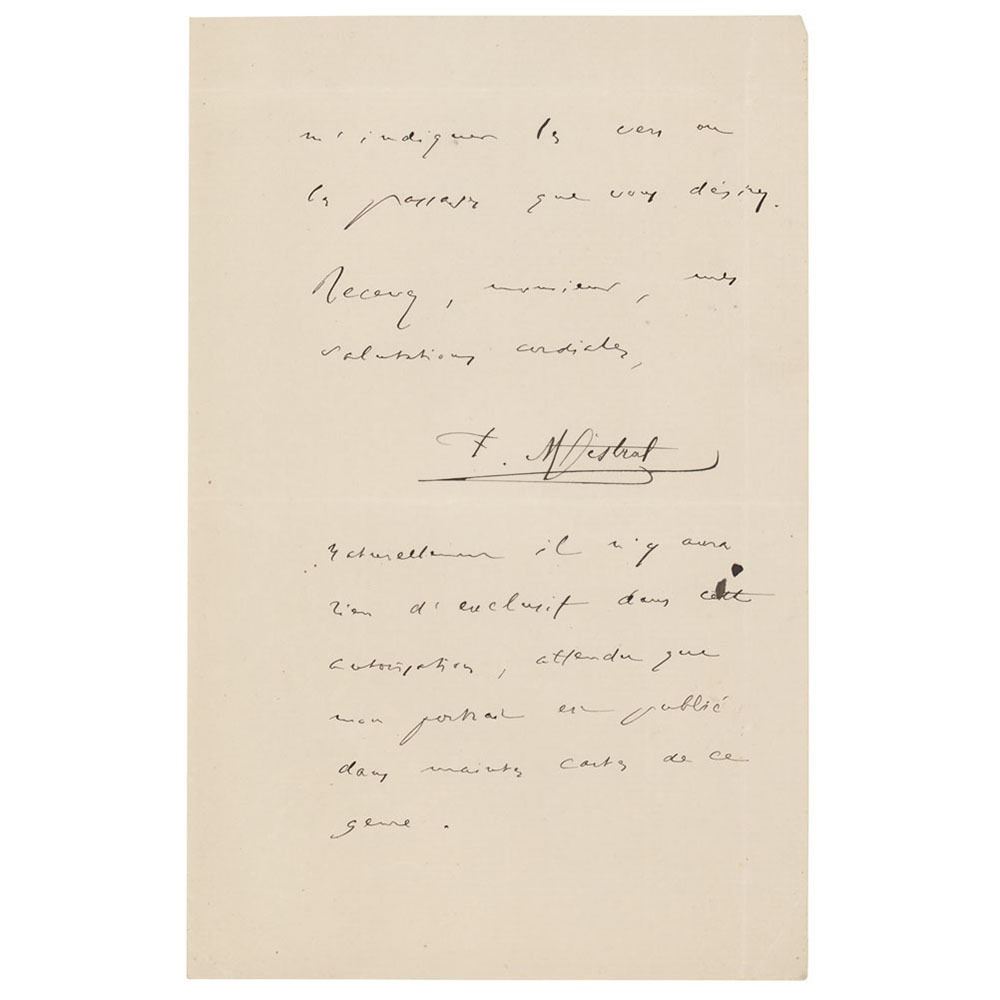 m'indiquer les vers ou
les passages que vous désirez.
Recevez, monsieur, mes
salutations cordiales,
F. Mistral
naturellement il n'y aura
rien d'exclusif dans cette
autorisation, attendu que
mon portrait est publié
dans maintes cartes de ce
genre.